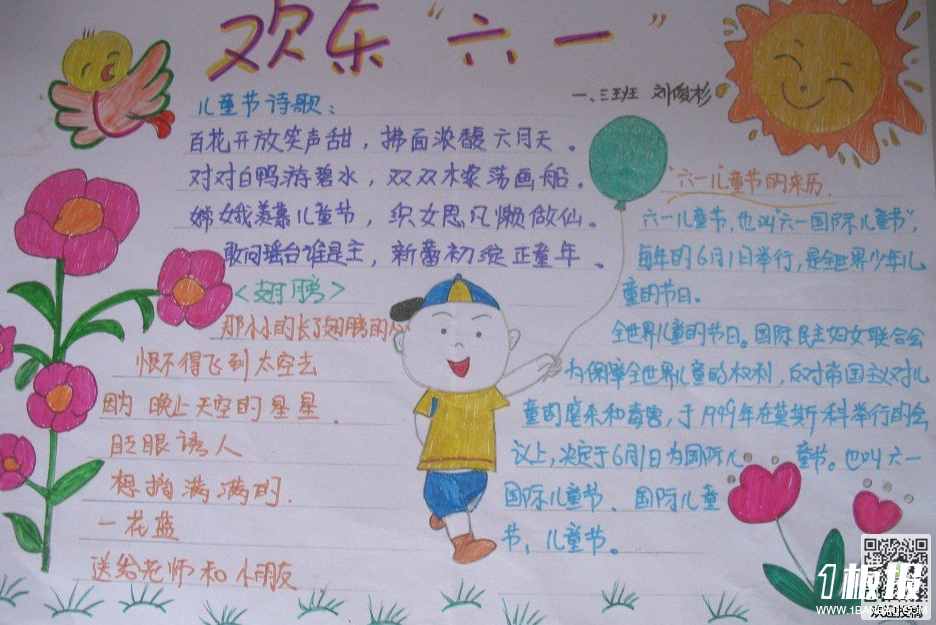 欢乐“六一”
一、三班 刘俊杉
儿童节诗歌：
百花开放笑声甜，拂面浓馥六月天。
对对白鸭游碧水，双双木桨荡画船。
嫦娥羡慕儿童节，织女思凡懒做仙。
敢问瑶台谁是主，新蕾初绽正童年。
<翅膀>
那小小的长了翅膀的心
恨不得飞到太空去
因为 晚上天空的星星.
眨眼诱人
想摘满满的.
一花蓝
送给老师和小朋友
“六一儿童节的来历.
六一儿童节，也叫“六一国际儿童节”，
每年的6月1日举行，是全世界少年儿
童的节日。
全世界儿童的节日。国际民主妇女联合会
为保障全世界儿童的权利，反对帝国主义对儿
童的虐杀和毒害，于1949年在莫斯科举行的会
议上，决定于6月1日为国际儿童节。也叫六一
国际儿童节、国际儿童
节，儿童节。
1板报
WWW.1BANBAO.COM
欢迎投稿